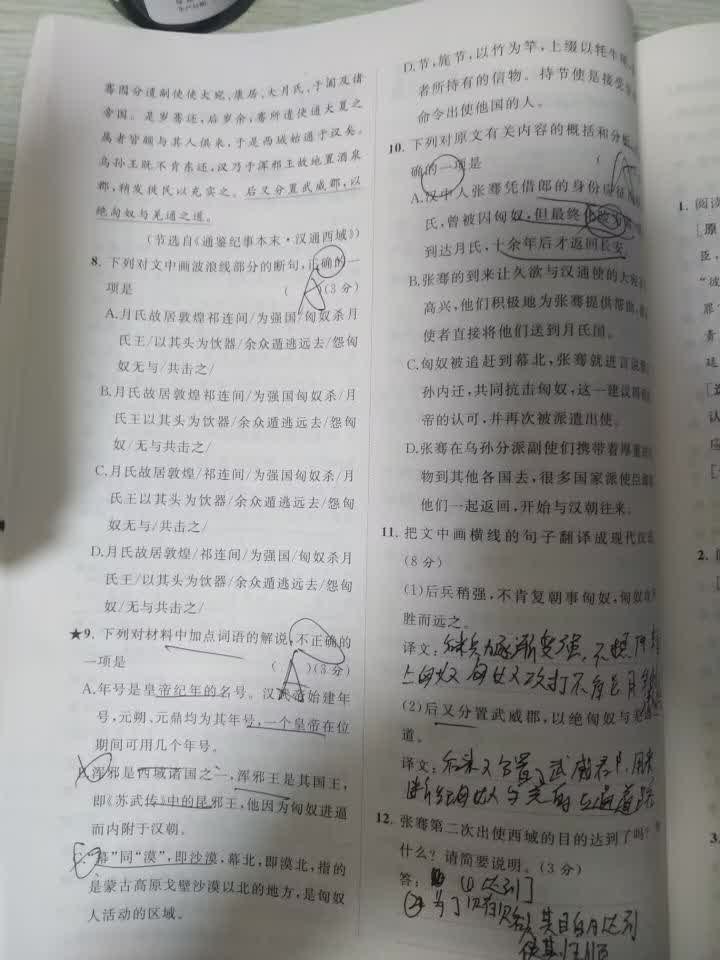 骞因分遣副使使大宛、康居、大月氏、于阗及诸
帝国。是岁骞还，后岁余，骞所遣使通大夏之
属者皆颇与其人俱来，于是西域始通于汉矣。
乌孙王既不肯东还，汉乃于浑邪王故地置酒泉
郡，稍发徙民以充实之。后又分置武威郡，以
绝匈奴与羌通之道。
（节选自《通鉴纪事本末·汉通西域》）
8. 下列对文中画波浪线部分的断句，正确的一
项是 （ ）（3分）
A
A.月氏故居敦煌祁连间/为强国/匈奴杀月
氏王/以其头为饮器/余众遁逃远去/怨匈
奴无与/共击之/
B.月氏故居敦煌祁连间/为强国匈奴杀/月
氏王以其头为饮器/余众遁逃远去/怨匈
奴/无与共击之/
C.月氏故居敦煌/祁连间/为强国匈奴杀/月
氏王以其头为饮器/余众遁逃远去/怨匈
奴无与/共击之/
D.月氏故居敦煌/祁连间/为强国/匈奴杀月
氏王/以其头为饮器/余众遁逃远去/怨匈
奴/无与共击之/
★9. 下列对材料中加点词语的解说，不正确的
一项是 （ ）（3分）
A
A.年号是皇帝纪年的名号。汉武帝始建年
号，元朔、元鼎均为其年号，一个皇帝在位
期间可用几个年号。
B.浑邪是西域诸国之一，浑邪王是其国王，
即《苏武传》中的昆邪王，他因为匈奴进逼
而内附于汉朝。
C.“幕”同“漠”，即沙漠，幕北，即漠北，指的
是蒙古高原戈壁沙漠以北的地方，是匈奴
人活动的区域。
D.节，旄节，以竹为竿，上缀以牦牛
者所持有的信物。持节使是接受
命令出使他国的人。
10. 下列对原文有关内容的概括和分
确的一项是 （
A
A.汉中人张骞凭借郎的身份应征
氏，曾被囚匈奴，但最终
到达月氏，十余年后才返回长安
B.张骞的到来让久欲与汉通使的大宛
高兴，他们积极地为张骞提供帮助，
使者直接将他们送到月氏国。
C.匈奴被追赶到幕北，张骞就进言说
孙内迁，共同抗击匈奴，这一建议得
帝的认可，并再次被派遣出使。
D.张骞在乌孙分派副使们携带着厚重
物到其他各国去，很多国家派使臣
他们一起返回，开始与汉朝往来。
11. 把文中画横线的句子翻译成现代汉语
（8分）
（1）后兵稍强，不肯复朝事匈奴，匈奴攻
胜而远之。
译文：后来兵力逐渐变强，不
上匈奴 匈奴攻打不
（2）后又分置武威郡，以绝匈奴与羌
道。
译文：后来又分置了武威君，用来
断绝匈奴与羌的交通道路
12. 张骞第二次出使西域的目的达到了吗？
什么？请简要说明。（3分）
答： ①达到
② 其目的达到